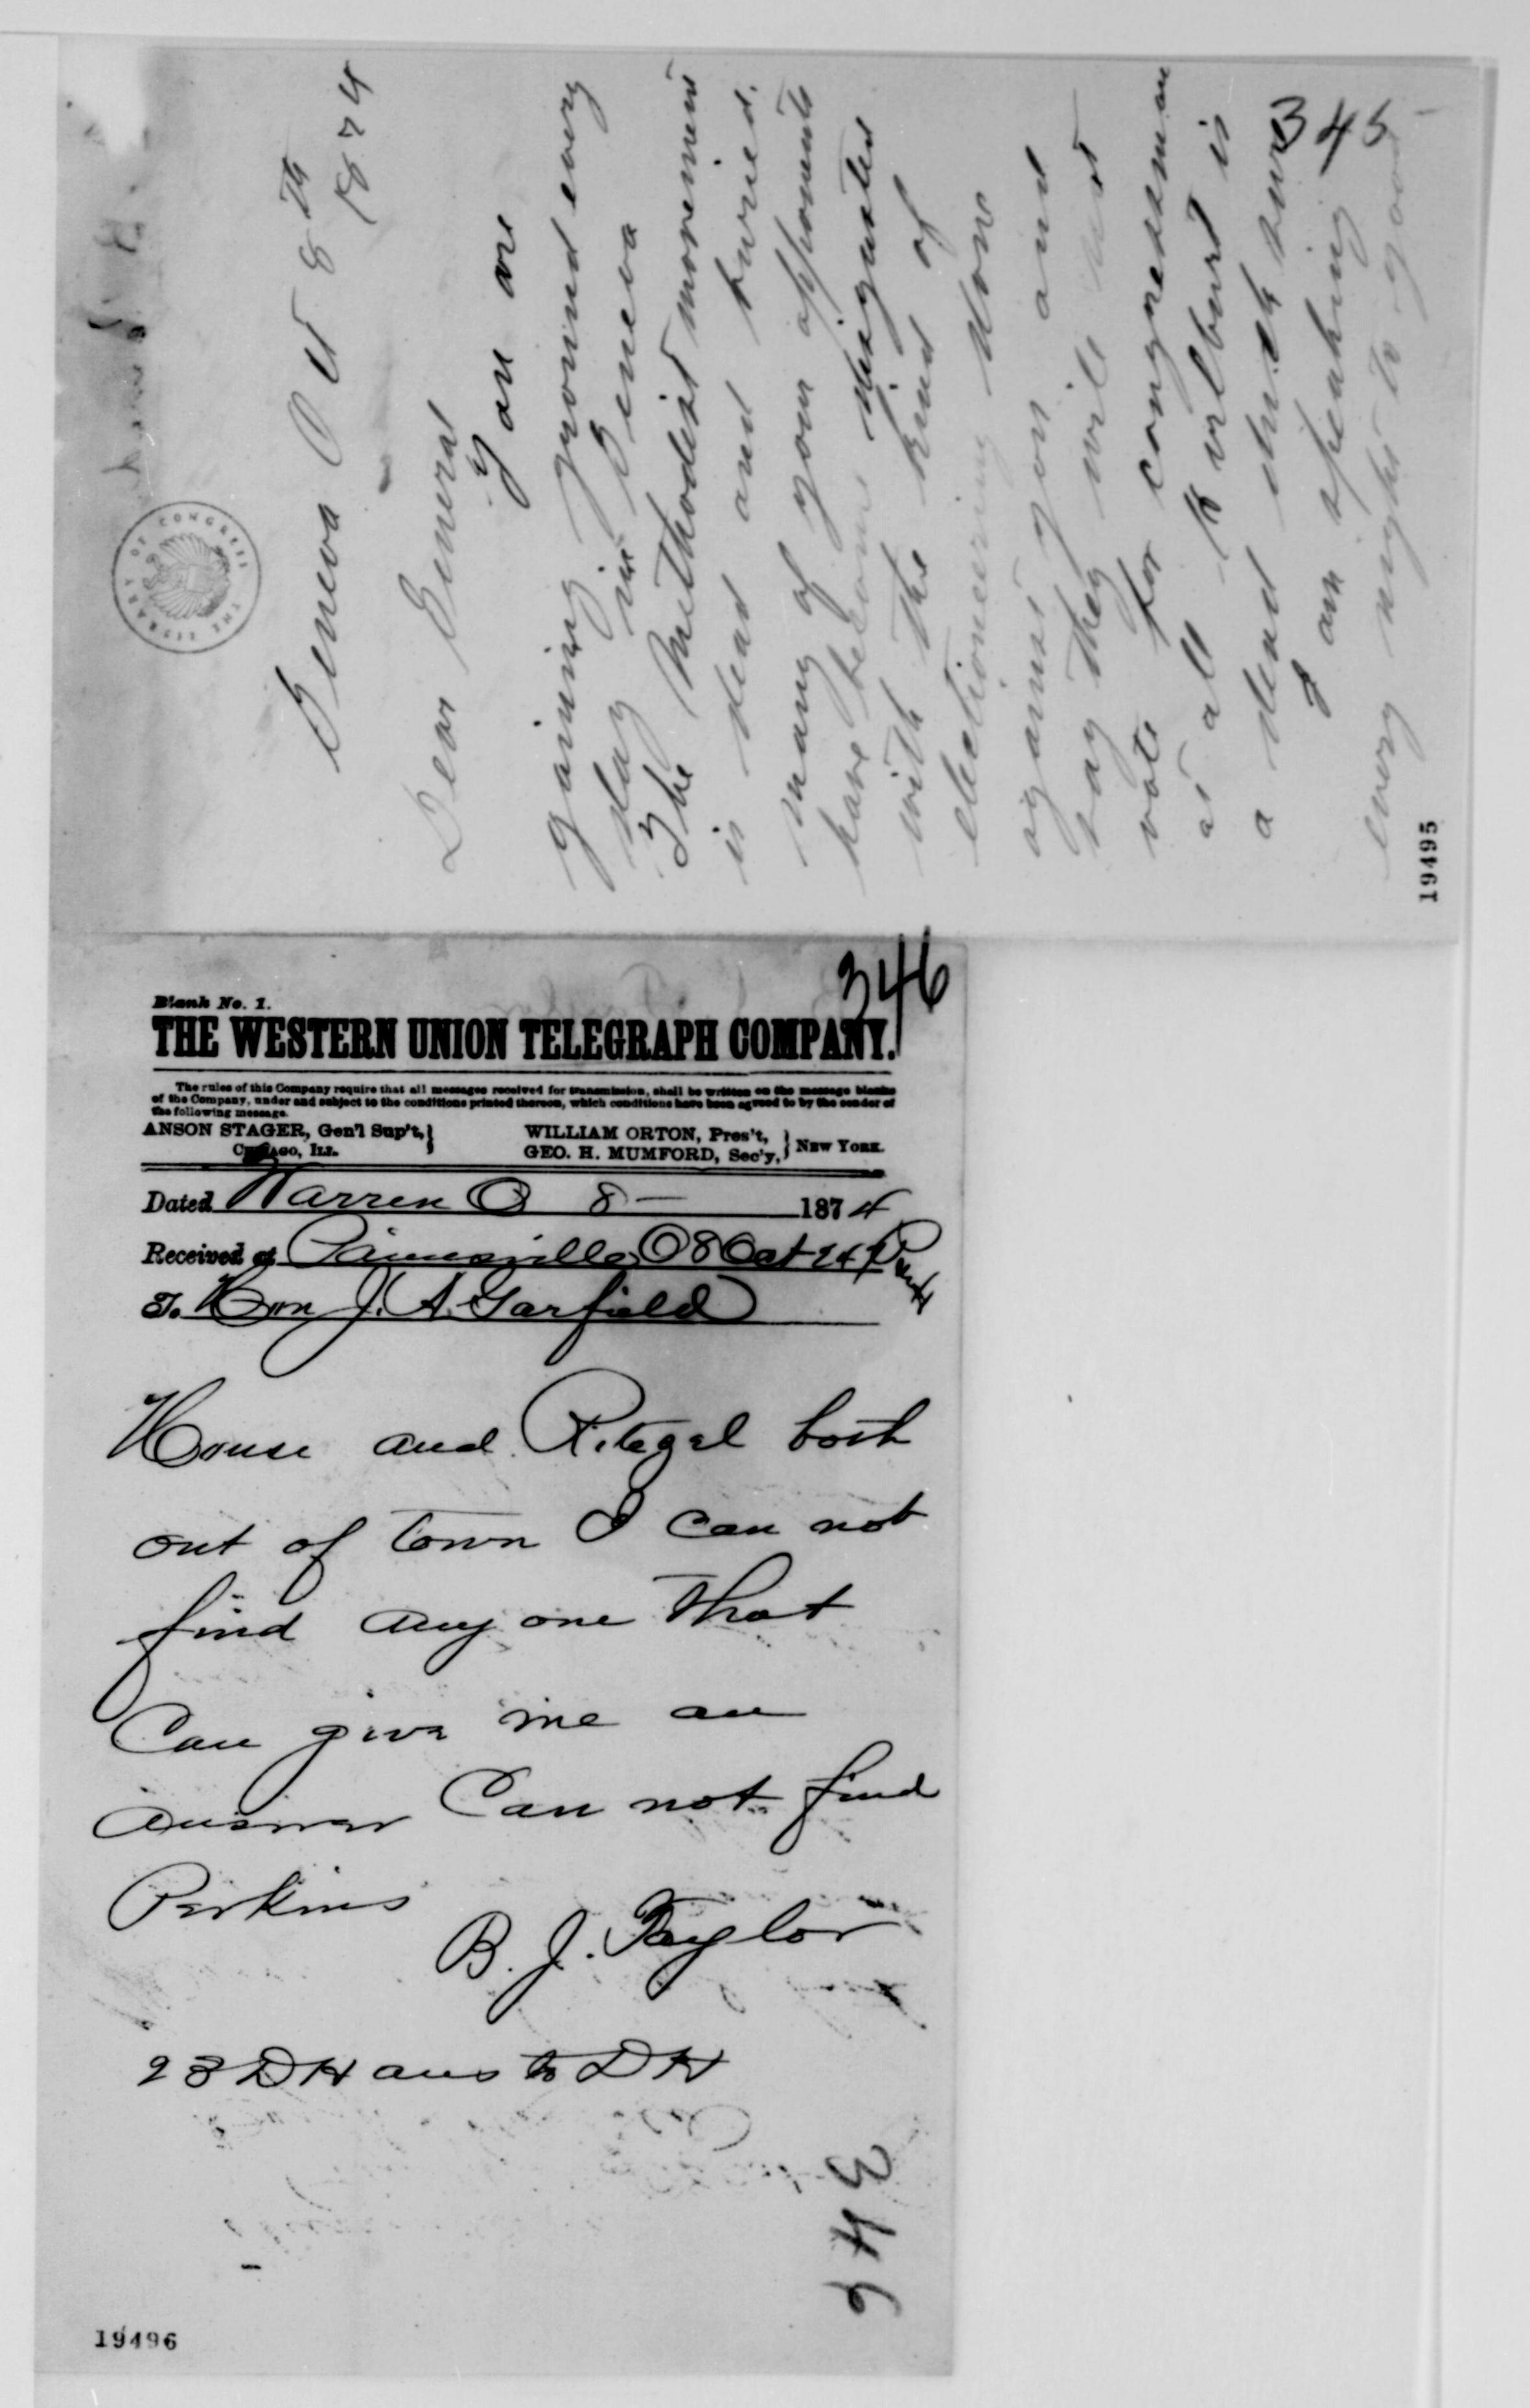 345
Geneva Oct 8th
1874
Dear General
You are
gaining ground every
day in Geneva
The Methodist movement
is dead and buried.
Many of your opponents
have become disgusted
with the kind of
electioneering done
against you and
say they will not
vote for congressman
at all Hurlburt is
a dead duck sure
I am speaking
every night to good
19495
LIBRARY OF CONGRESS
346
Blank No. 1.
THE WESTERN UNION TELEGRAPH COMPANY.
The rules of this Company require that all messages received for transmission, shall be written on the message blanks
of the Company, under and subject to the conditions printed thereon, which conditions have been agreed to by the sender of
the following message.
ANSON STAGER, Gen'l Sup't, WILLIAM ORTON, Pres't,
CHICAGO, ILL. GEO. H. MUMFORD, Sec'y, NEW YORK.
Dated Warren O 8 — 1874
Received at Painesville O 8 Oct
To Hon J. A. Garfield
House and Ritezel both
out of town I can not
find any one that
Can give me an
answer Can not find
Perkins
B. J. Taylor
23 DH ans to DH
346
19496